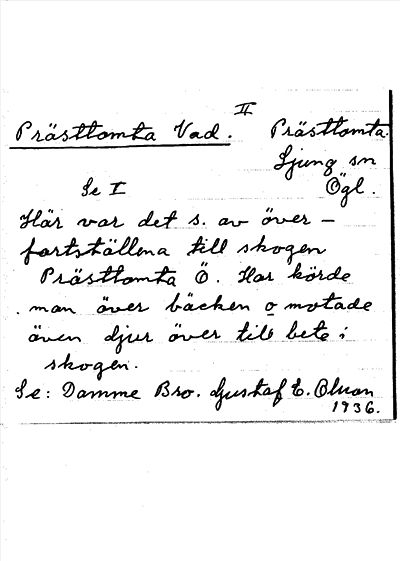 II
Prästtomta Vad. Prästtomta.
Ljung sn
Se I Ögl.
Här var det s. av över-
fartställena till skogen
Prästtomta Ö. Har körde
man över bäcken o motade
även djur över till bete i
skogen.
Se: Damme Bro. Gustaf E. Olson
1936.